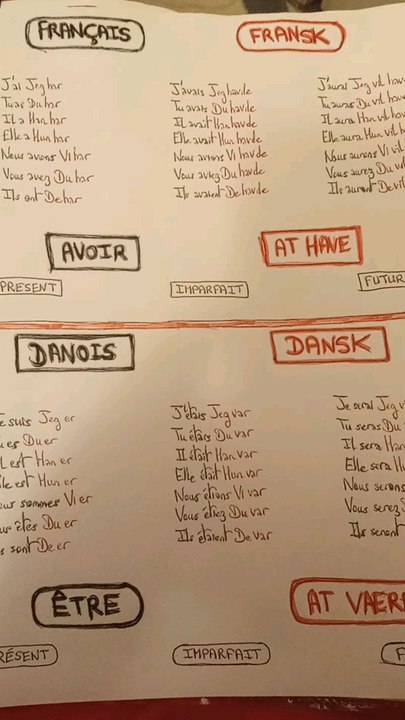 FRANÇAIS
FRANSK
J'ai Jeg har
Tu as Du har
Il a Han har
Elle a Hun har
Nous avons Vi har
Vous avez Du har
Ils ont De har
J'avais Jeg havde
Tu avais Du havde
Il avait Han havde
Elle avait Hun havde
Nous avions Vi havde
Vous aviez Du havde
Ils avaient De havde
J'aurai Jeg vil hav
Tu auras Du vil hav
Il aura Han vil hav
Elle aura Hun vil ha
Nous aurons Vi vil
Vous aurez Du v
Ils auront De vil
AVOIR
AT HAVE
PRESENT
IMPARFAIT
FUTUR
DANOIS
DANSK
e suis Jeg er
es Du er
l est Han er
lle est Hun er
ous sommes Vi er
ous êtes Du er
s sont De er
J'étais Jeg var
Tu étais Du var
Il était Han var
Elle était Hun var
Nous étions Vi var
Vous étiez Du var
Ils étaient De var
Je serai Jeg v
Tu seras Du
Il sera Han
Elle sera H
Nous serons
Vous serez
Ils seront
ÊTRE
AT VAER
RÉSENT
IMPARFAIT
F